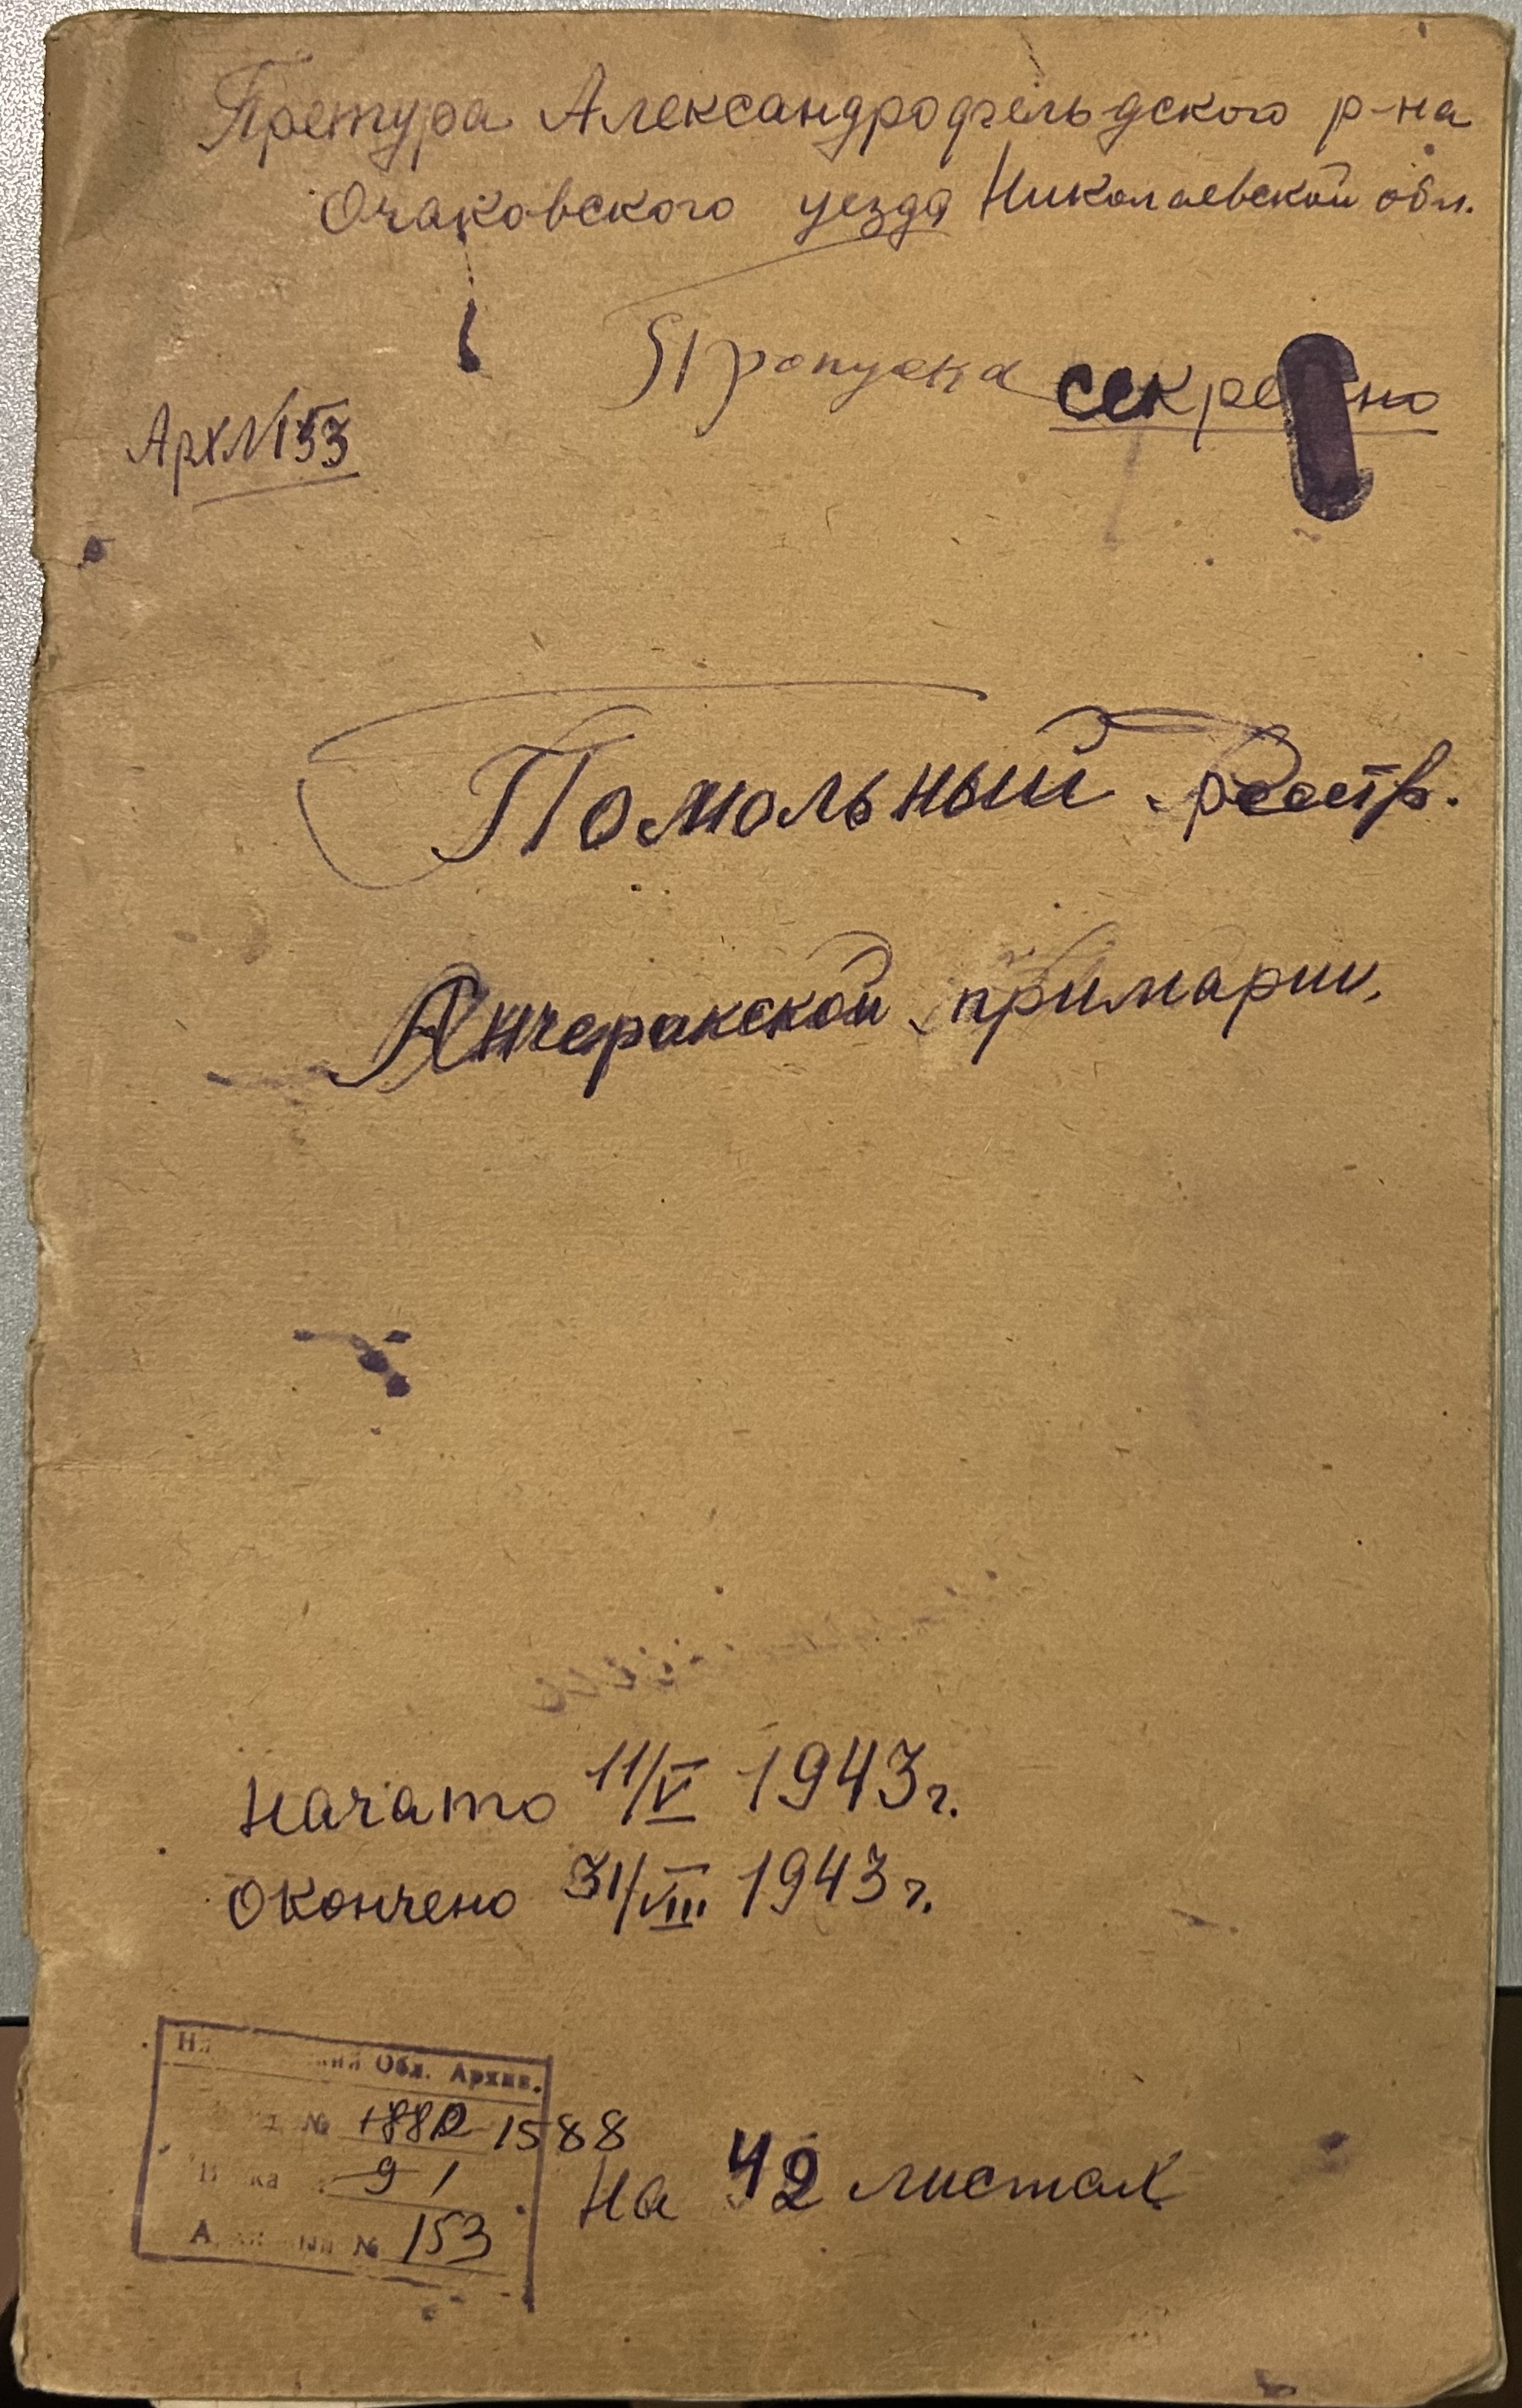 Претура Александрофельдского р-на
Очаковского уезда Николаевской обл.
Пропуска секретно
Арх N153
Помольный реестр.
Анчеракской примарии,
начато 11/V 1943 г.
окончено 31/VIII 1943 г.
Обл. Архив.
№ 1882 1588
9 1
№ 153
На 42 листах